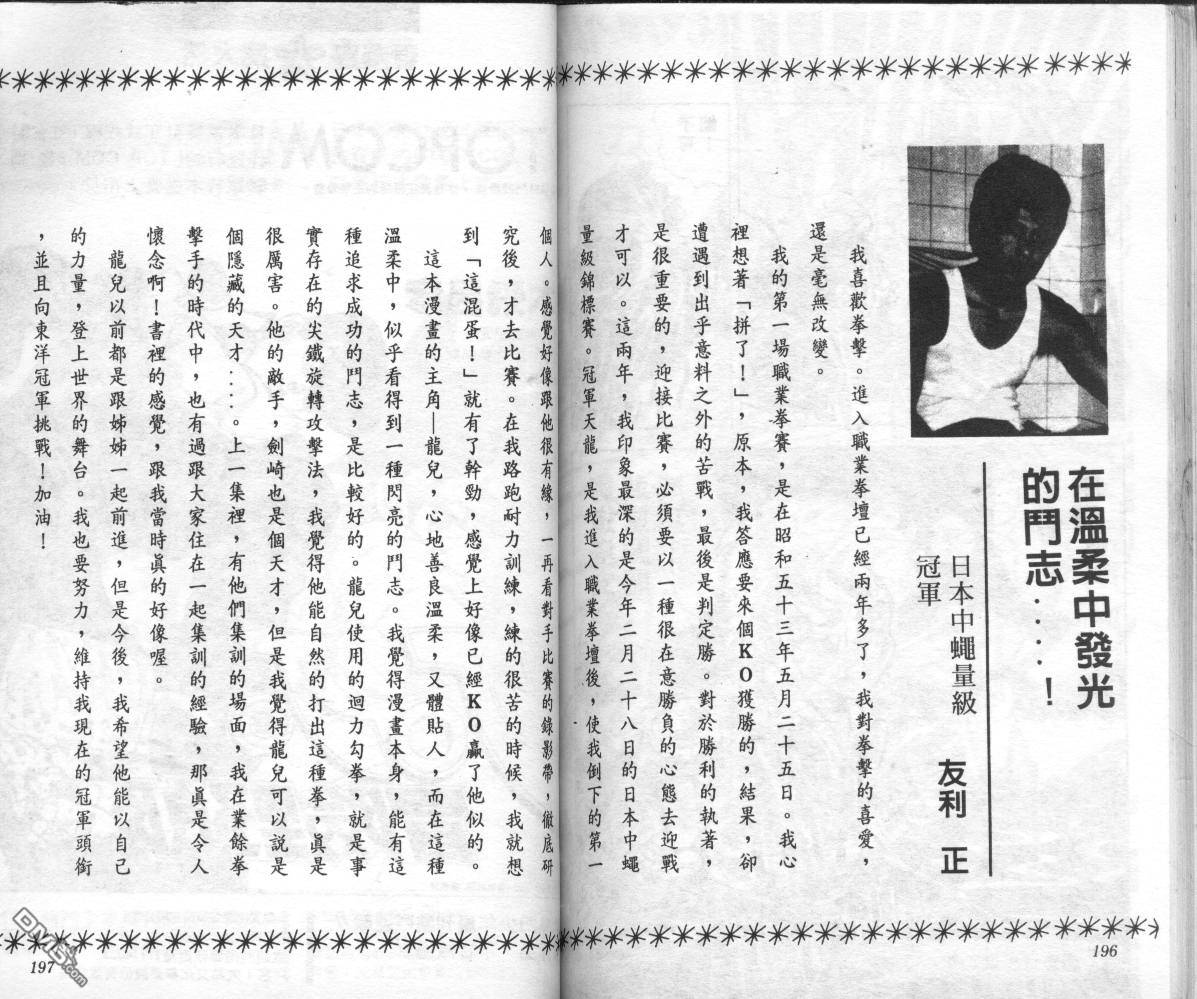 在溫柔中發光
的鬥志‥‥！
日本中蠅量級
冠軍
友利 正
我喜歡拳擊。進入職業拳壇已經兩年多了，我對拳擊的喜愛，
還是毫無改變。
我的第一場職業拳賽，是在昭和五十三年五月二十五日。我心
裡想著「拼了！」，原本，我答應要來個KO獲勝的，結果，卻
遭遇到出乎意料之外的苦戰，最後是判定勝。對於勝利的執著，
是很重要的，迎接比賽，必須要以一種很在意勝負的心態去迎戰
才可以。這兩年，我印象最深的是今年二月二十八日的日本中蠅
量級錦標賽。冠軍天龍，是我進入職業拳壇後，使我倒下的第一
196
個人。感覺好像跟他很有緣，一再看對手比賽的錄影帶，徹底研
究後，才去比賽。在我路跑耐力訓練，練的很苦的時候，我就想
到「這混蛋！」就有了幹勁，感覺上好像已經KO贏了他似的。
這本漫畫的主角—龍兒，心地善良溫柔，又體貼人，而在這種
溫柔中，似乎看得到一種閃亮的鬥志。我覺得漫畫本身，能有這
種追求成功的鬥志，是比較好的。龍兒使用的迴力勾拳，就是事
實存在的尖鐵旋轉攻擊法，我覺得他能自然的打出這種拳，真是
很厲害。他的敵手，劍崎也是個天才，但是我覺得龍兒可以說是
個隱藏的天才‥‥。上一集裡，有他們集訓的場面，我在業餘拳
擊手的時代中，也有過跟大家住在一起集訓的經驗，那真是令人
懷念啊！書裡的感覺，跟我當時真的好像喔。
龍兒以前都是跟姊姊一起前進，但是今後，我希望他能以自己
的力量，登上世界的舞台。我也要努力，維持我現在的冠軍頭銜
，並且向東洋冠軍挑戰！加油！
197
DM5.com